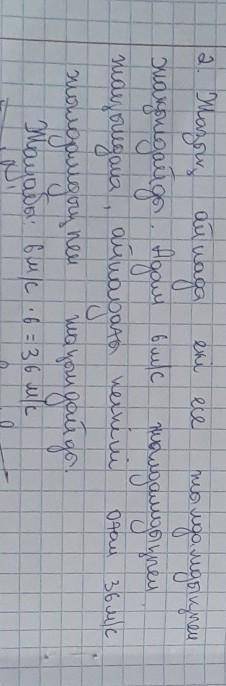 2. Жазық айнада екі есе жылдамдықпен
жақындайды. Адам 6 м/с жылдамдықпен
жақындаса, айнадағы кескіні оған 36 м/с
жылдамдықпен жақындайды.
Жауабы: 6 м/с · 6 = 36 м/с